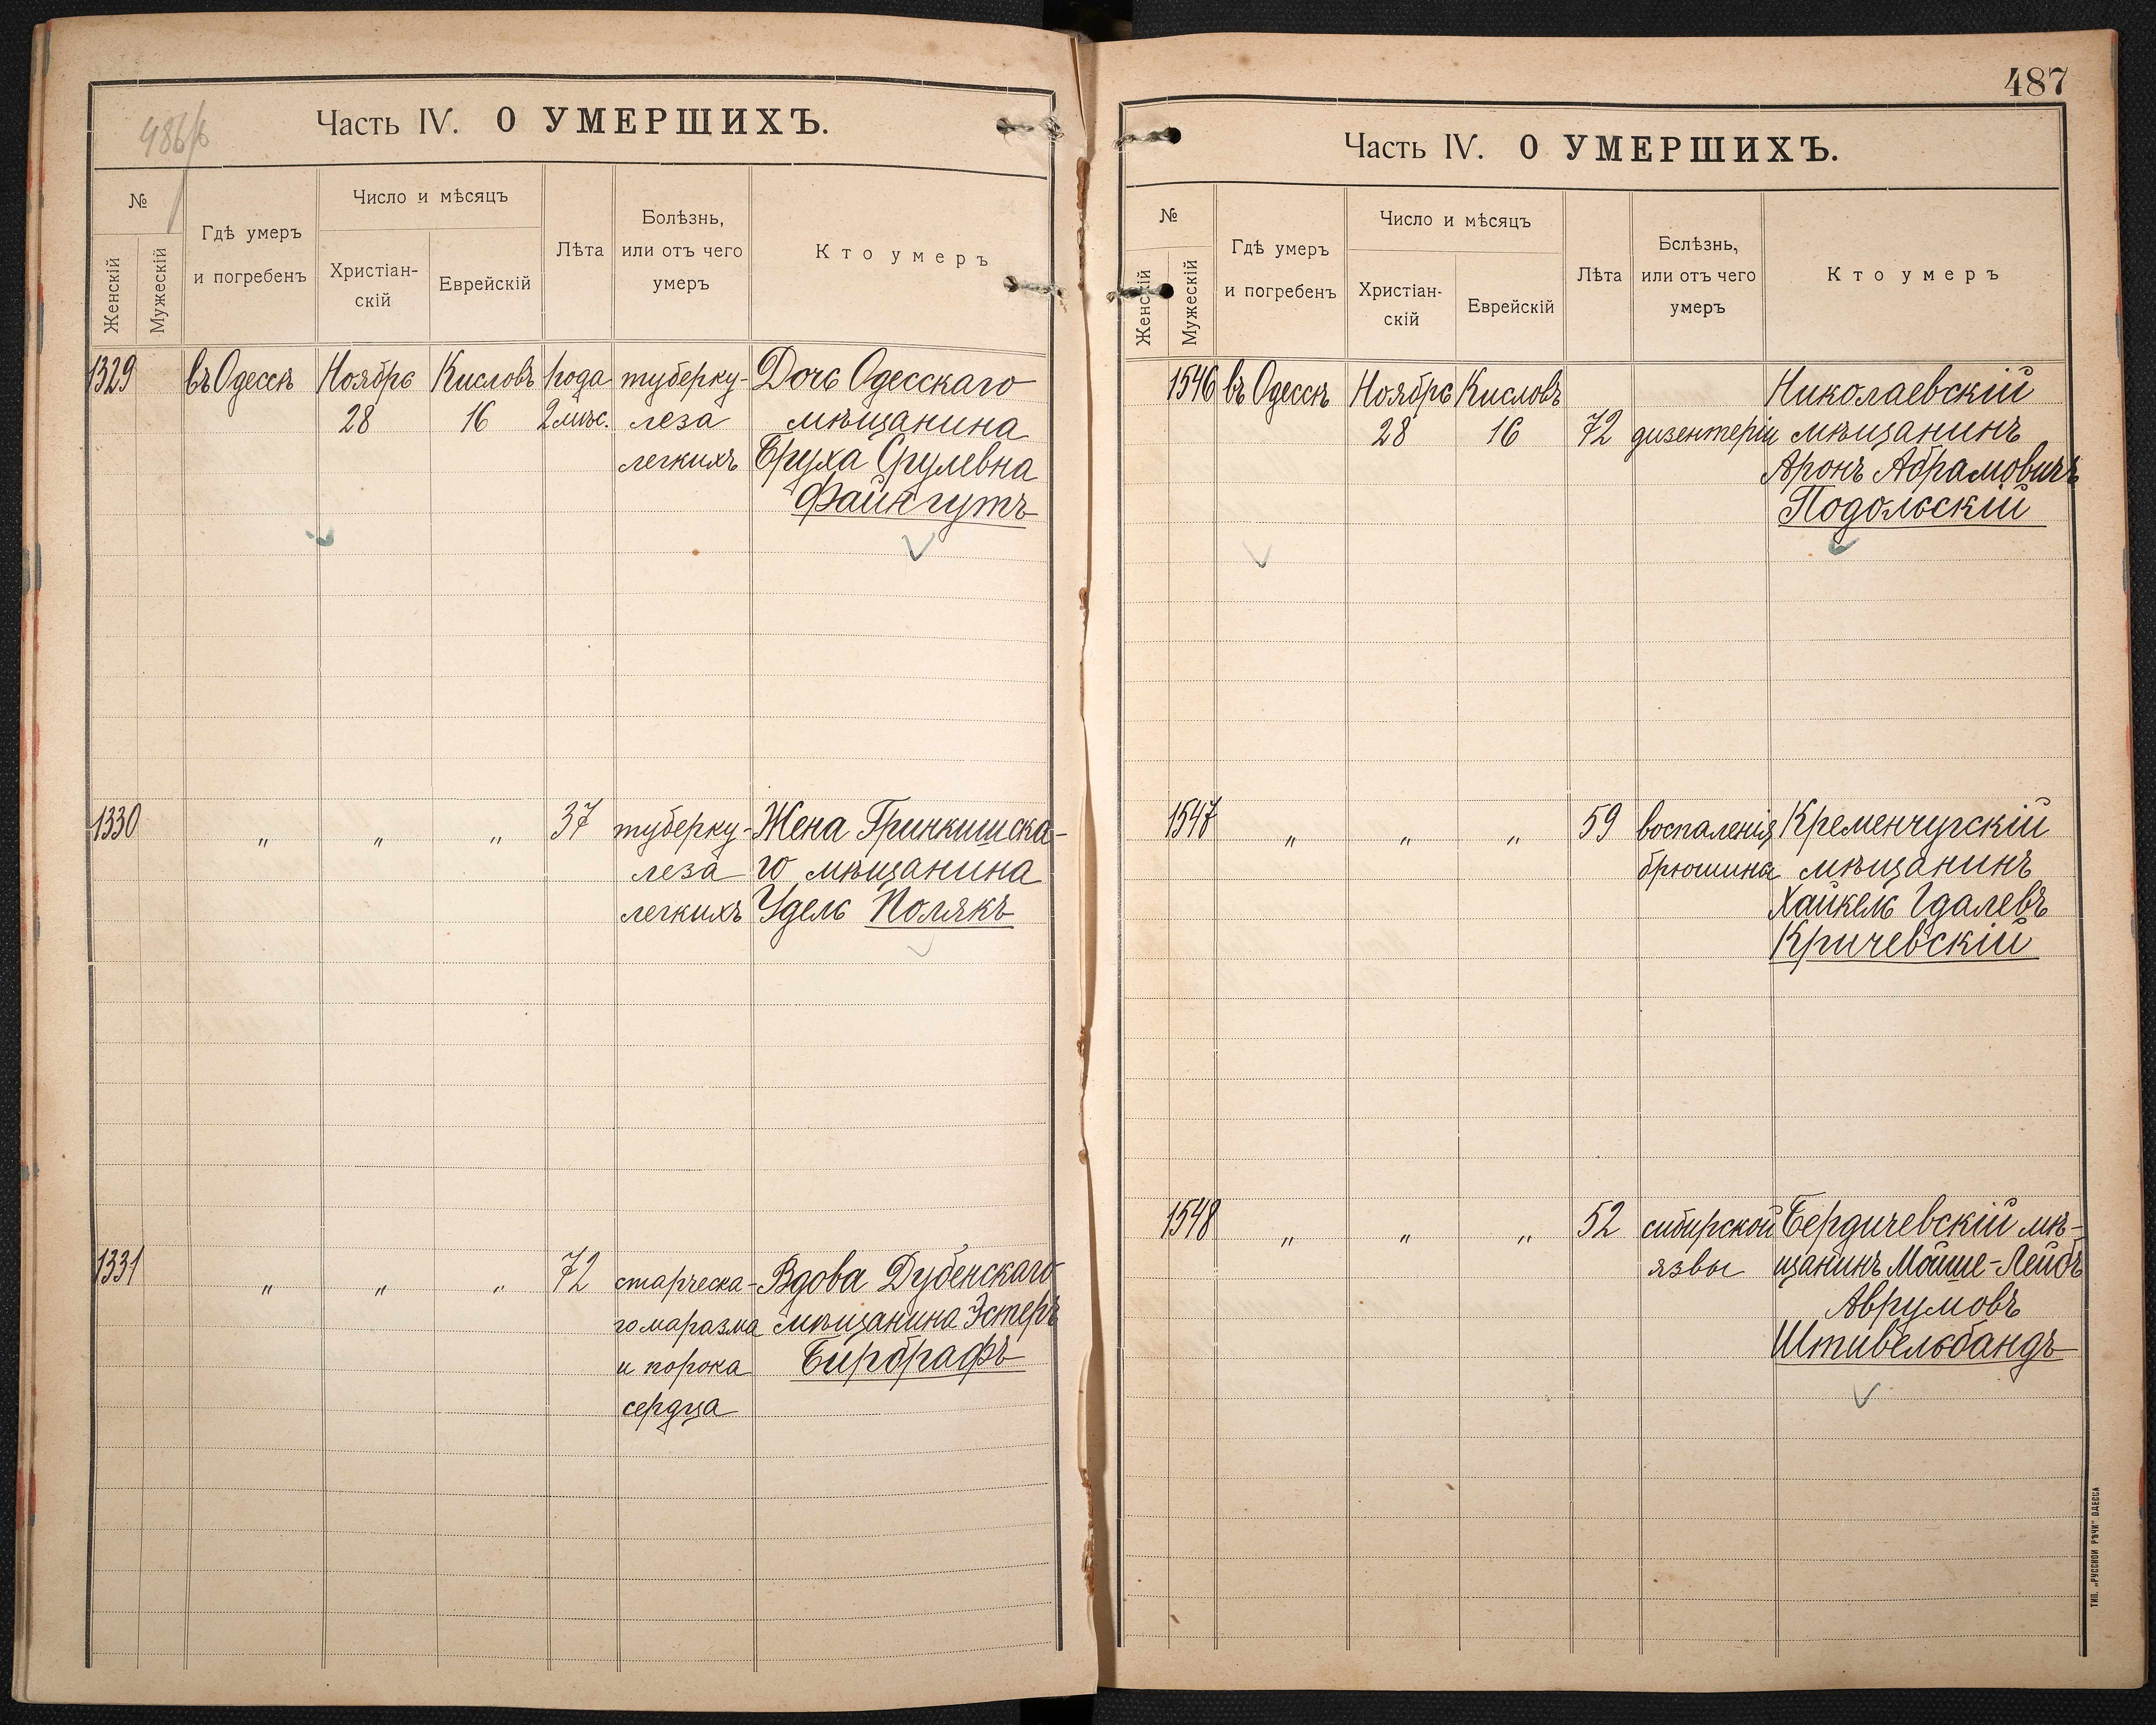 486/б
Часть IV. О УМЕРШИХЪ.
№
Женскій
Мужескій
Гдѣ умеръ
и погребенъ
Число и мѣсяцъ
Христіан-
скій
Еврейскій
Лѣта
Болѣзнь,
или отъ чего
умеръ
Кто умеръ
1329 въ Одессѣ Ноябрь Кисловъ года туберку- Дочь Одесскаго
28 16 2 мѣс. леза мѣщанина
легкихъ Бруха Срулевна
Файнгутъ
1330 „ „ „ 37 туберку- Жена Гринкишска-
леза го мѣщанина
легкихъ Удель Полякъ
1331 „ „ „ 72 старческа- Вдова Дубенскаго
го маразма мѣщанина Эстеръ
и порока Бирбрафъ
сердца
487
Часть IV. О УМЕРШИХЪ.
№
Женскій
Мужескій
Гдѣ умеръ
и погребенъ
Число и мѣсяцъ
Христіан-
скій
Еврейскій
Лѣта
Бслѣзнь,
или отъ чего
умеръ
Кто умеръ
1546 въ Одессѣ Ноябрь Кисловъ Николаевскій
28 16 72 дизентеріи мѣщанинъ
Аронъ Абрамовичъ
Подольскій
1547 „ „ „ 59 воспаленія Кременчугскій
брюшина мѣщанинъ
Хайкель Гдалевъ
Кричевскій
1548 „ „ „ 52 сибирской Бердичевскій мѣ-
язвы щанинъ Мойше-Лейбъ
Аврумовъ
Штивельбандъ
ТИП. „РУССКОЙ РѢЧИ" ОДЕССА